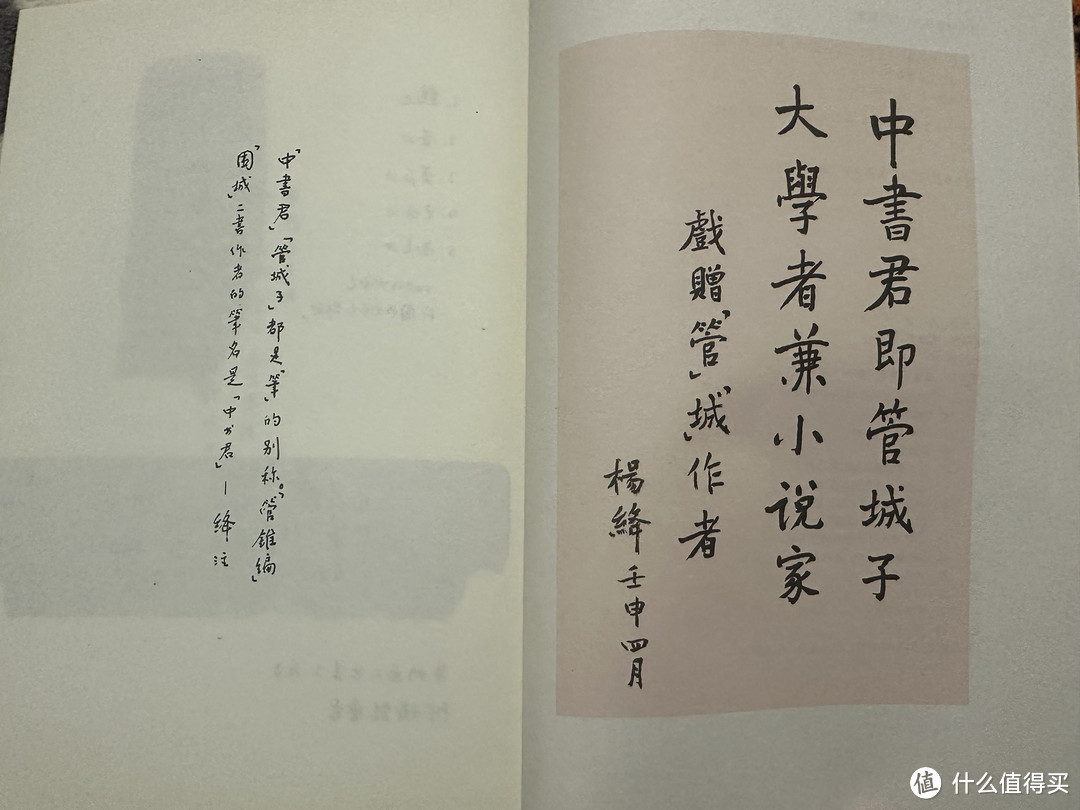 中書君即管城子
大學者兼小说家
戲贈「管」「城」作者
楊絳壬申四月
「中書君」「管城子」都是「筆」的别称。「管錐編」
「圍城」二書作者的筆名是「中书君」—絳注
值 什么值得买